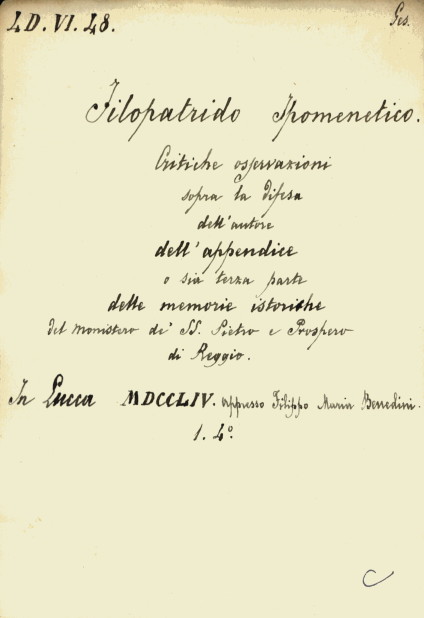 LD. VI. 48.
Ges.
Filopatrido Ipomenetico.
Critiche osservazioni
sopra la difesa
dell'autore
dell'appendice
o sia terza parte
delle memorie istoriche
del monistero de' SS. Pietro e Prospero
di Reggio.
In Lucca MDCCLIV. appresso Filippo Maria Benedini.
1. 4º.
C